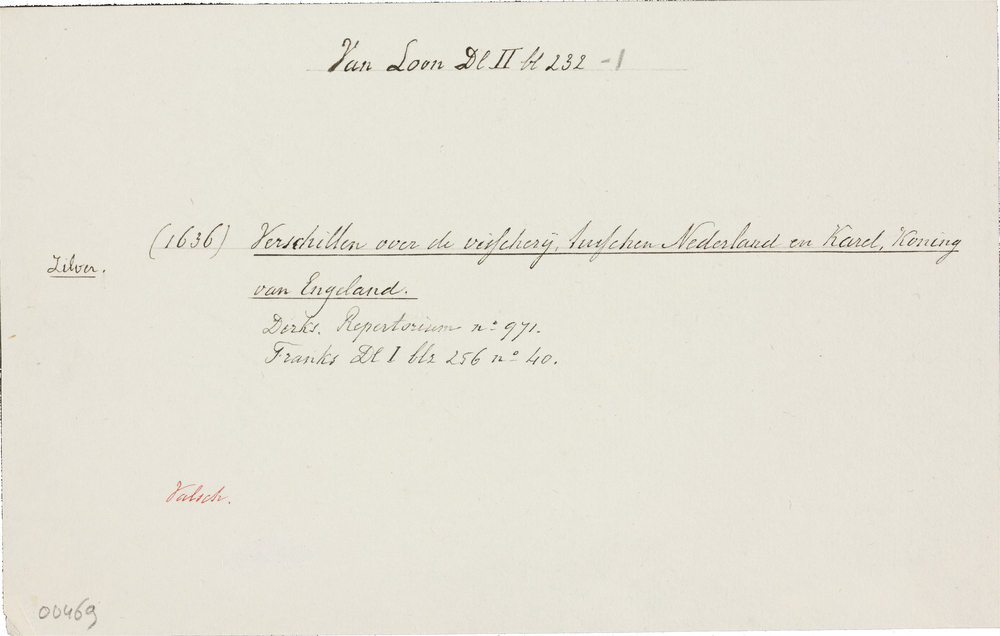 Van Loon Dl II bl 232 -1
(1636) Verschillen over de visscherij, tusschen Nederland en Karel, Koning
Zilver.
van Engeland.
Dirks. Repertorium nº 971.
Franks Dl I blz 256 nº 40.
Valsch.
00469